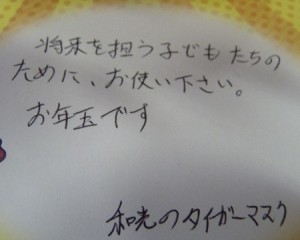 将来を担う子どもたちの
ために、お使い下さい。
お年玉です
和光のタイガーマスク